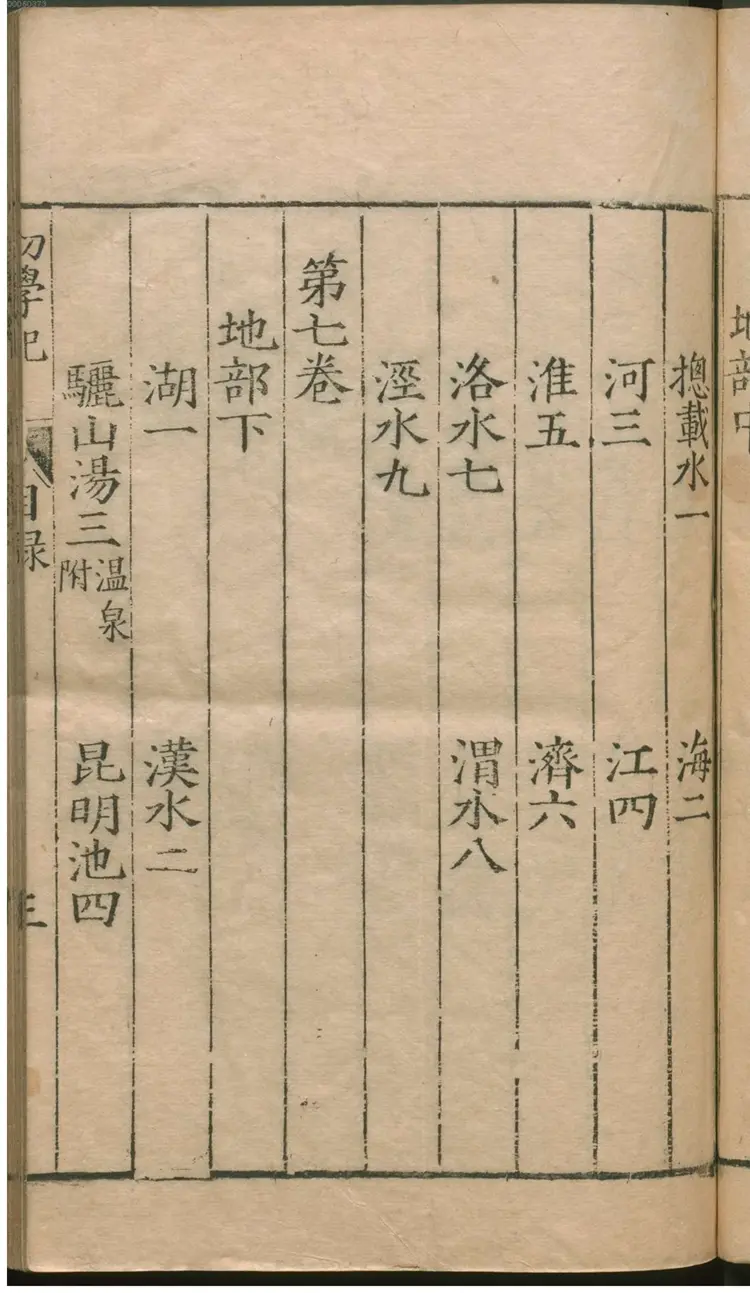 00080373
地部中
摠載水一 海二
河三 江四
淮五 濟六
洛水七 渭水八
涇水九
第七卷
地部下
湖一 漢水二
驪山湯三溫泉附 昆明池四
初學記 目録 三